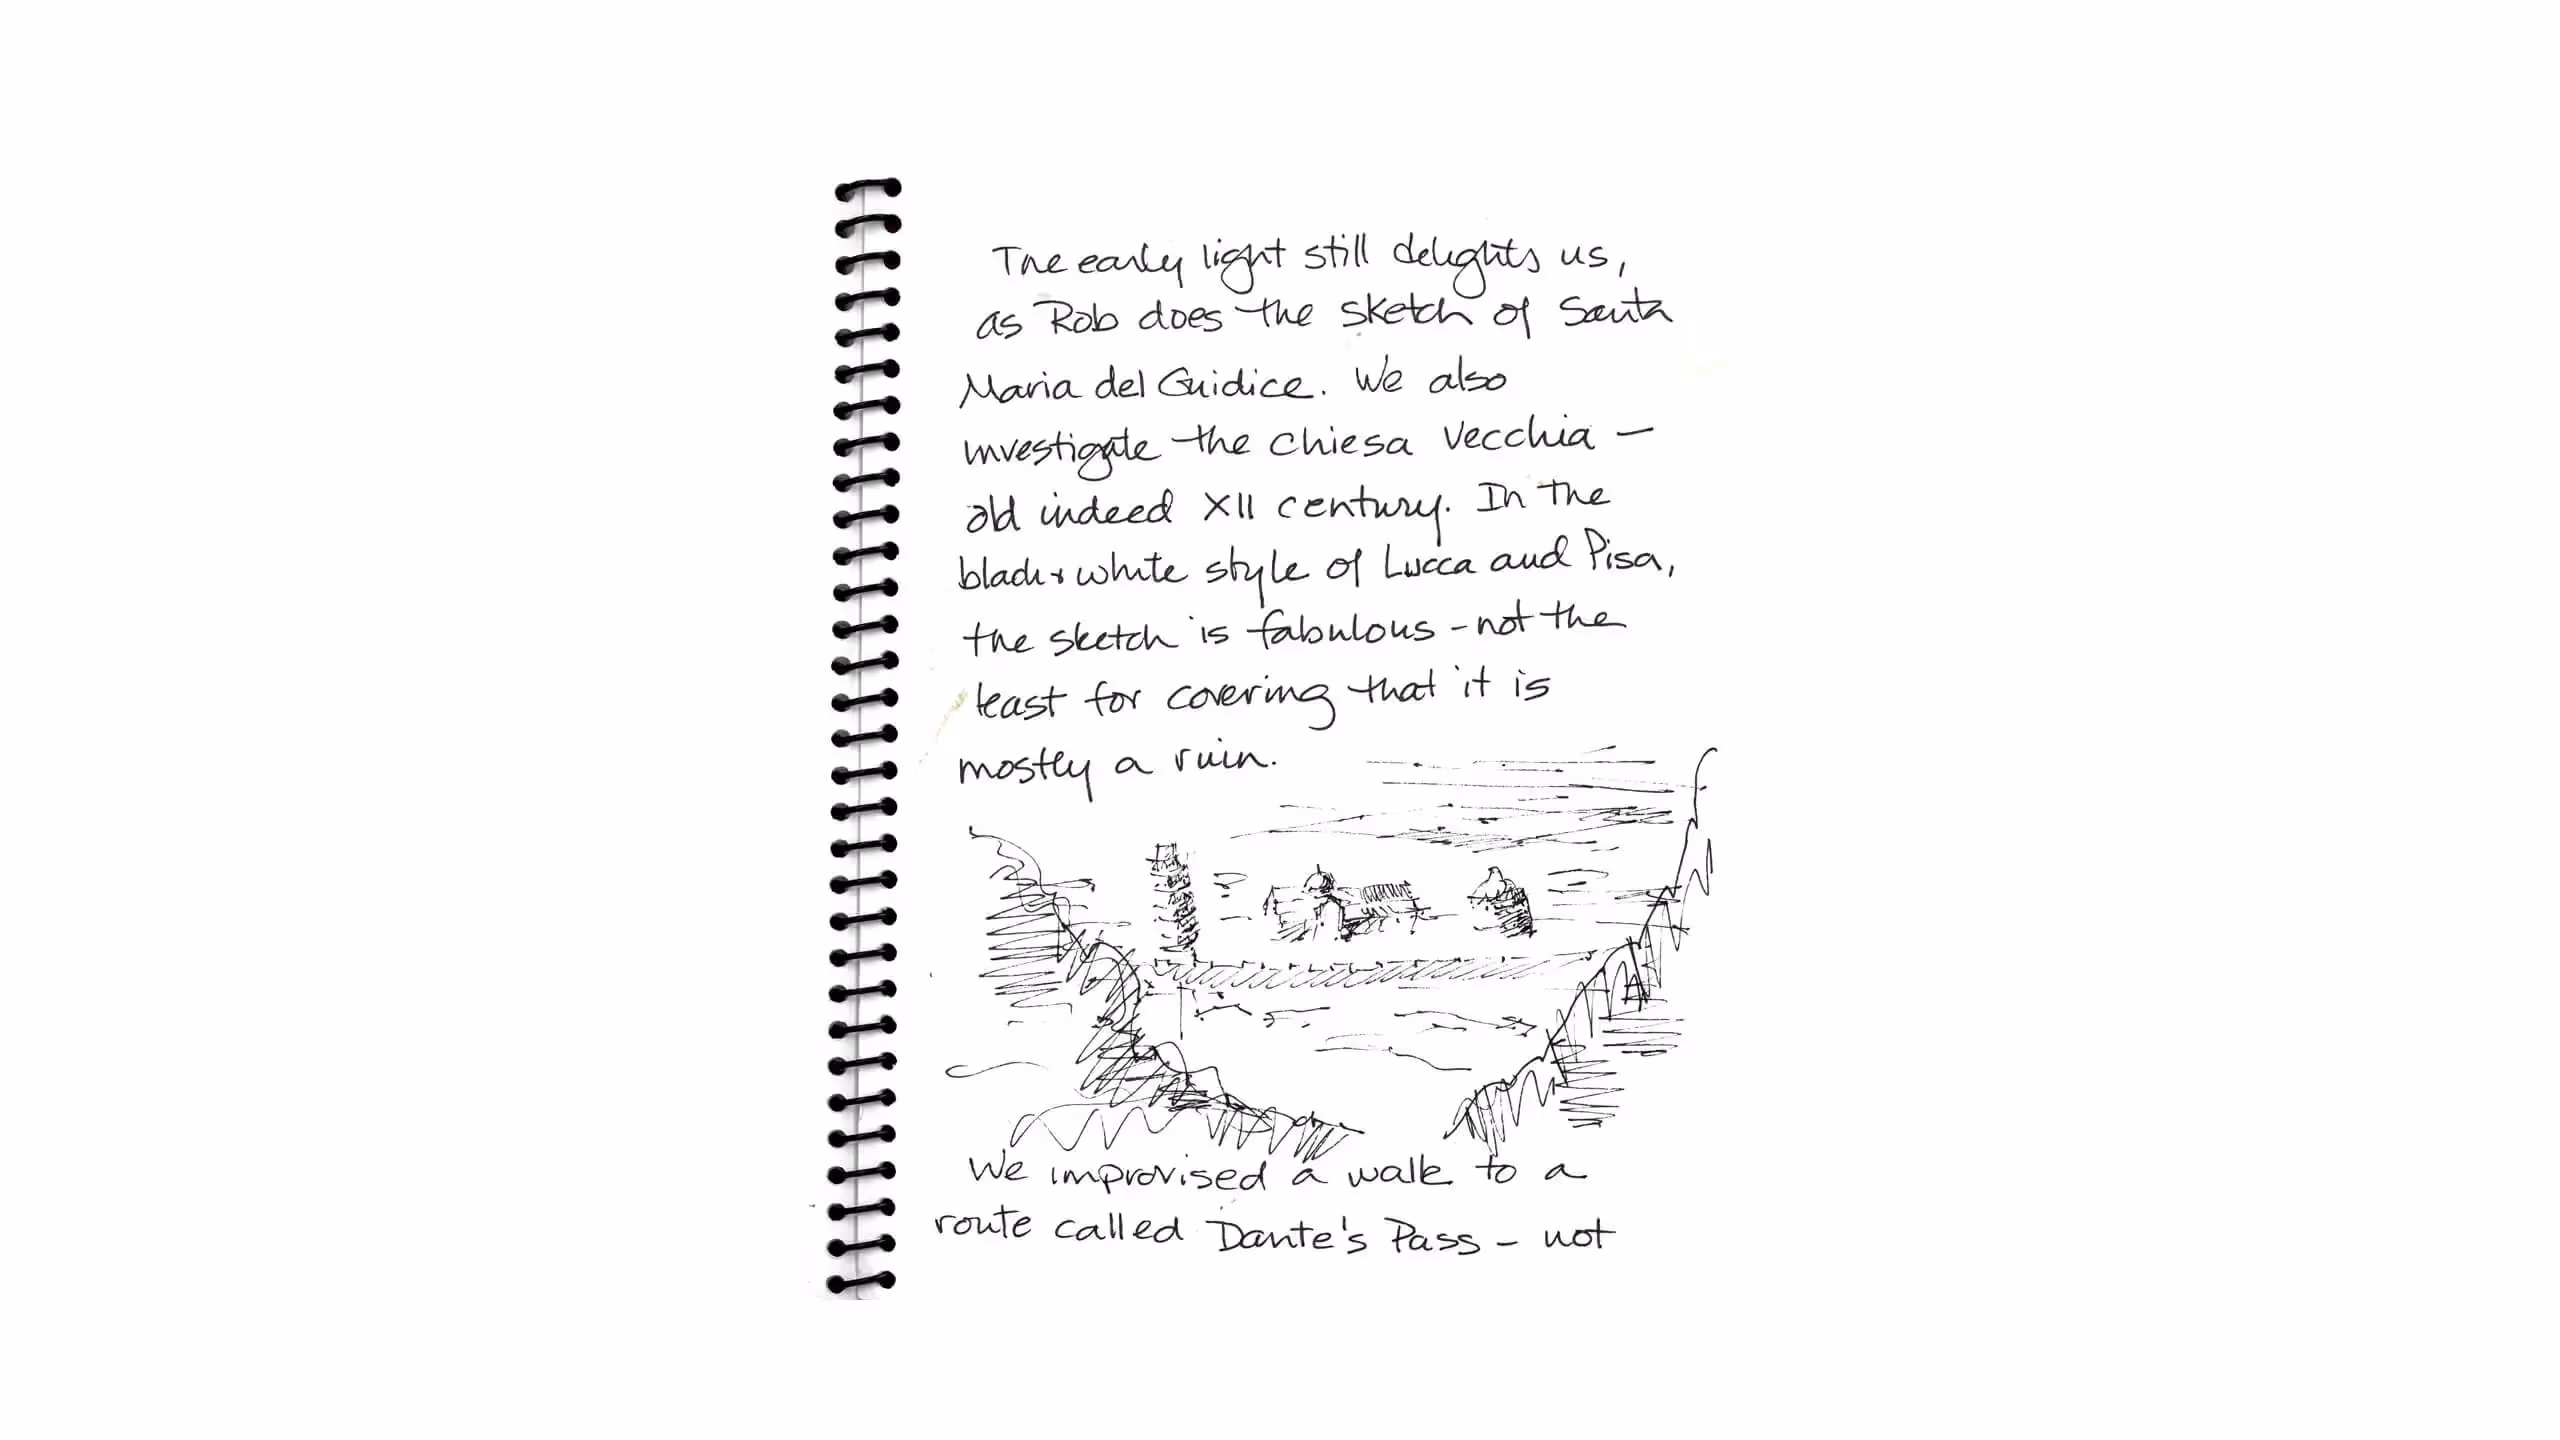 The early light still delights us,
as Rob does the sketch of Santa
Maria del Guidice. We also
investigate the chiesa vecchia —
old indeed XII century. In the
black + white style of Lucca and Pisa,
the sketch is fabulous - not the
least for covering that it is
mostly a ruin.
We improvised a walk to a
route called Dante's Pass - not